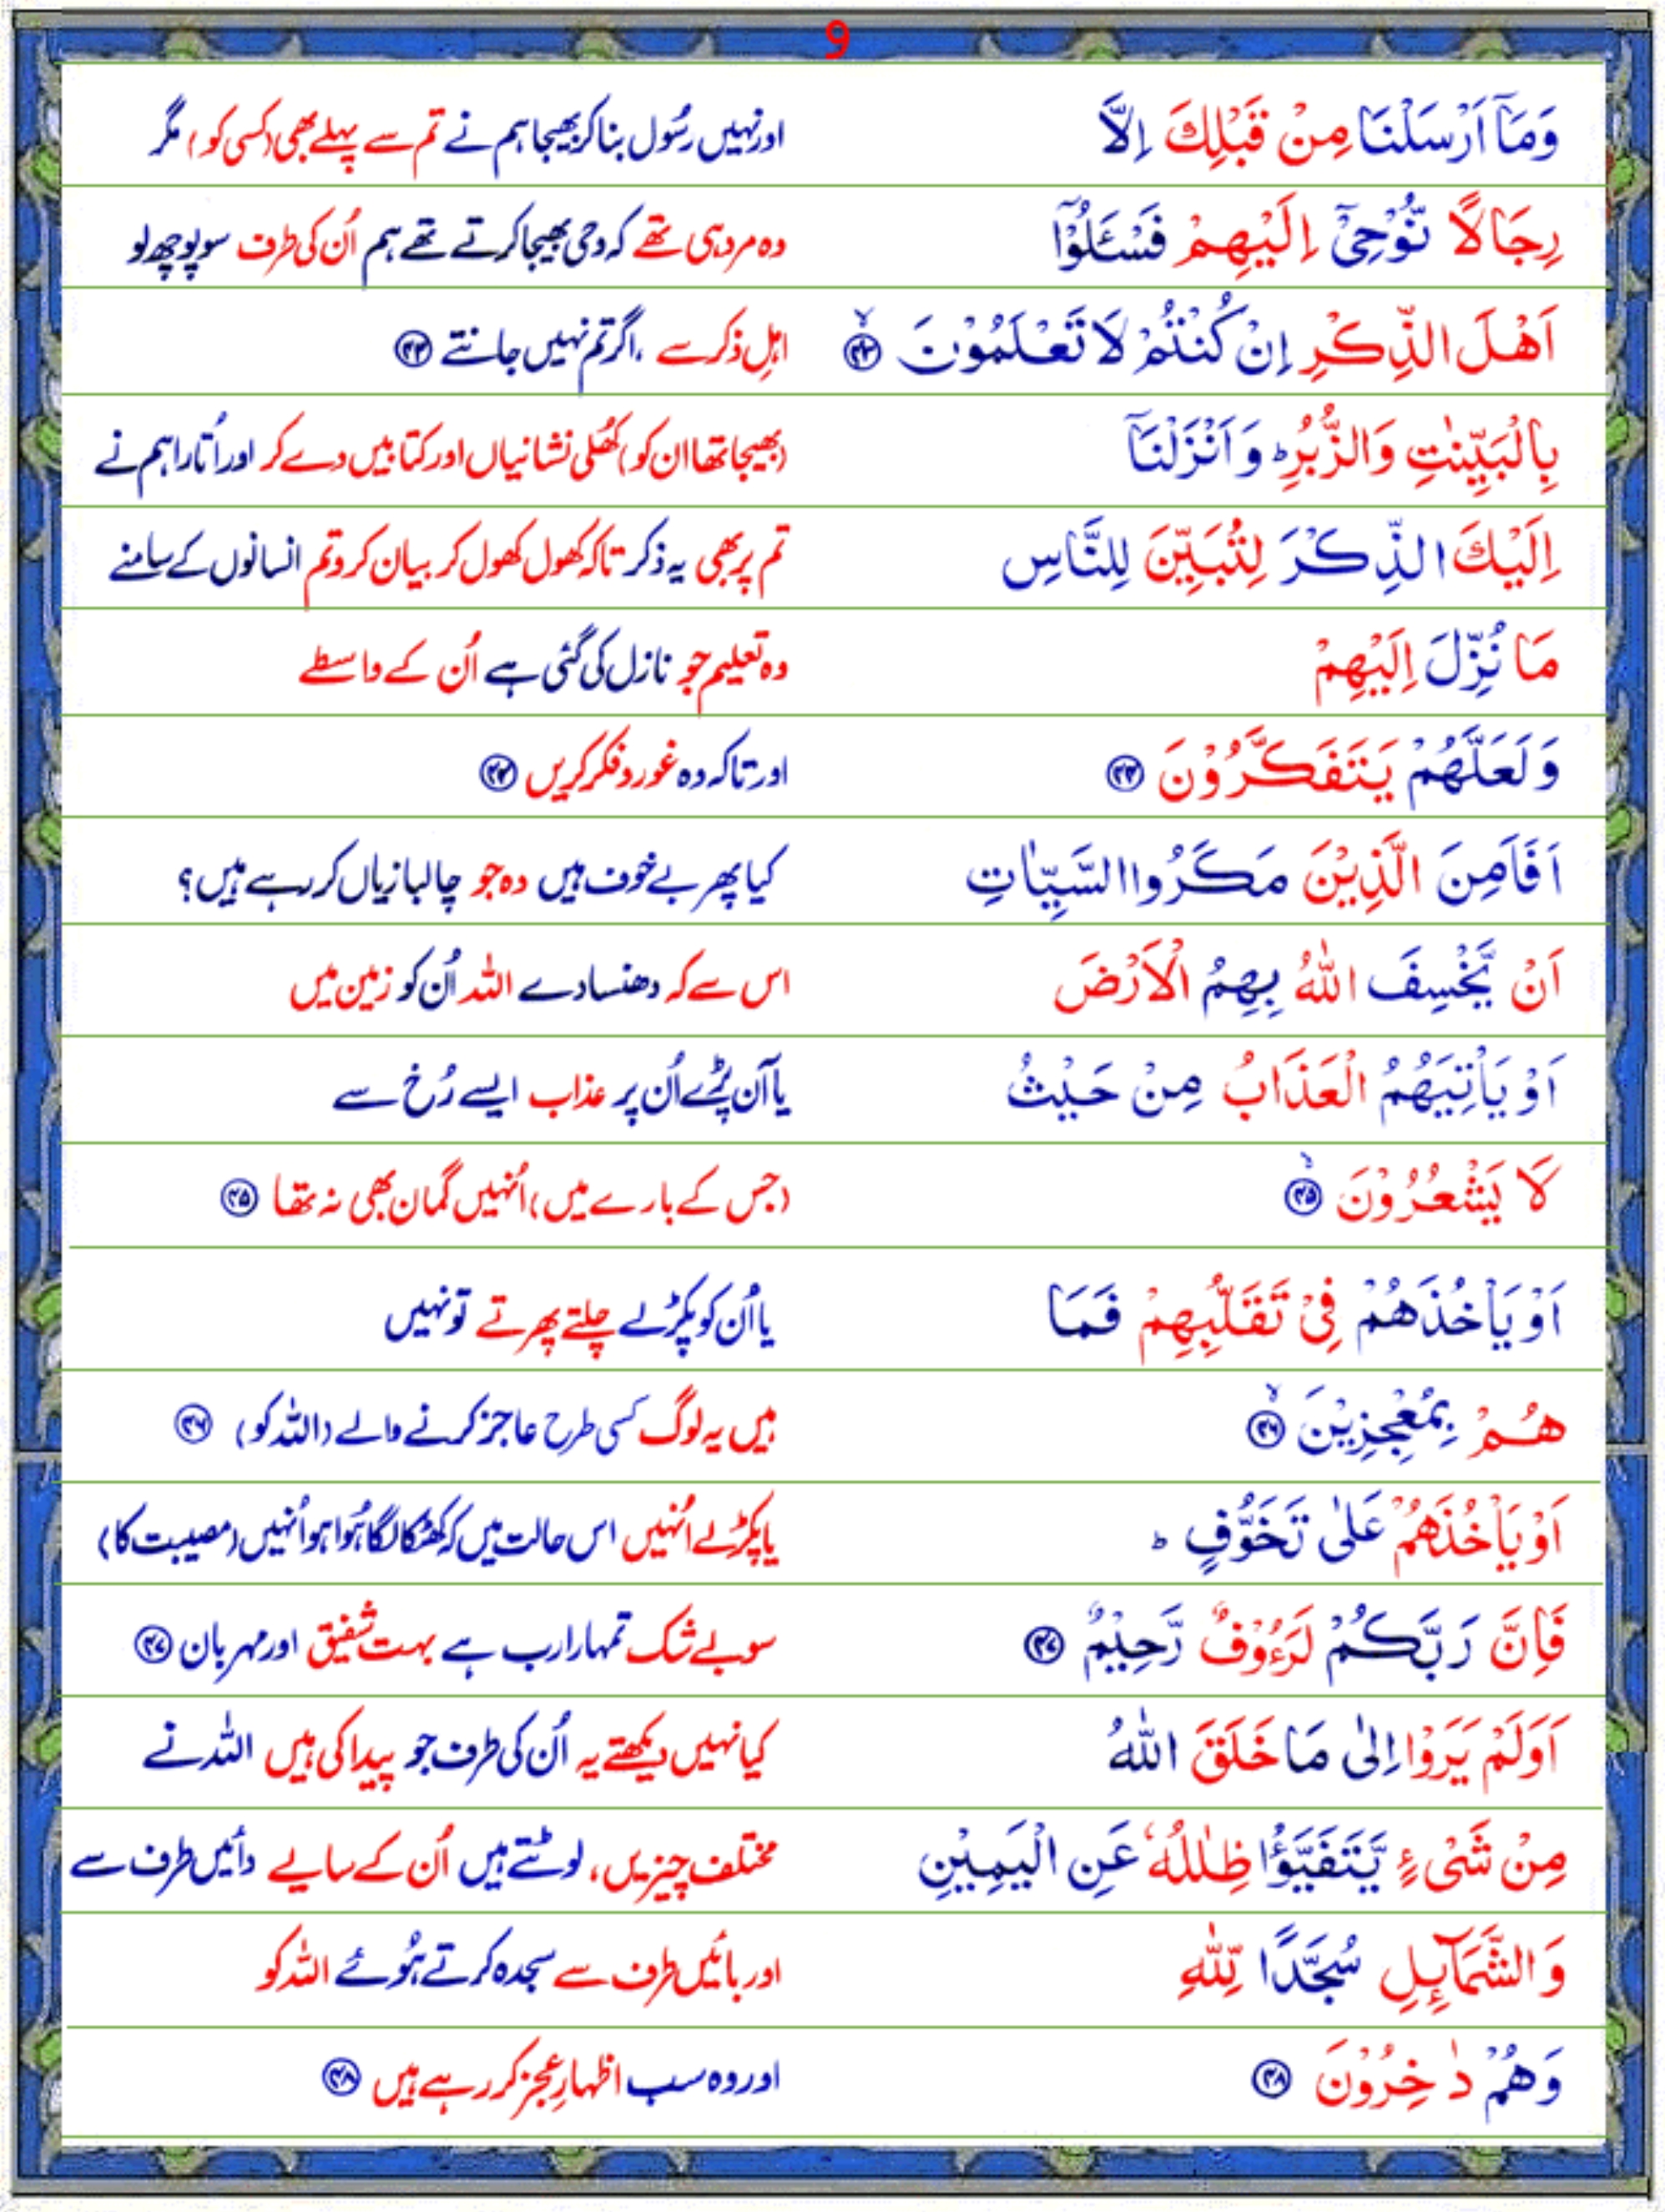 9
وَمَآ اَرْسَلْنَا مِنْ قَبْلِكَ اِلَّا اور نہیں رسُول بنا کر بھیجا ہم نے تم سے پہلے بھی (کسی کو) مگر
رِجَالًا نُّوْحِیْۤ اِلَیْهِمْ فَسْـَٔلُوْۤا وہ مرد ہی تھے کہ وحی بھیجا کرتے تھے ہم اُن کی طرف سو پوچھ لو
اَهْلَ الذِّكْرِ اِنْ كُنْتُمْ لَا تَعْلَمُوْنَ ۙ﴿۴۳﴾ اہلِ ذکر سے ، اگر تم نہیں جانتے ﴿۴۳﴾
بِالْبَیِّنٰتِ وَالزُّبُرِ ؕ وَ اَنْزَلْنَاۤ (بھیجا تھا ان کو) کھُلی نشانیاں اور کتابیں دے کر اور اُتارا ہم نے
اِلَیْكَ الذِّكْرَ لِتُبَیِّنَ لِلنَّاسِ تم پر بھی یہ ذکر تاکہ کھول کھول کر بیان کرو تم انسانوں کے سامنے
مَا نُزِّلَ اِلَیْهِمْ وہ تعلیم جو نازل کی گئی ہے اُن کے واسطے
وَ لَعَلَّهُمْ یَتَفَكَّرُوْنَ ﴿۴۴﴾ اور تاکہ وہ غور و فکر کریں ﴿۴۴﴾
اَفَاَمِنَ الَّذِیْنَ مَكَرُوا السَّیِّاٰتِ کیا پھر بے خوف ہیں وہ جو چالبازیاں کر رہے ہیں؟
اَنْ یَّخْسِفَ اللّٰهُ بِهِمُ الْاَرْضَ اس سے کہ دھنسا دے اللہ اُن کو زمین میں
اَوْ یَاْتِیَهُمُ الْعَذَابُ مِنْ حَیْثُ یا آن پڑے اُن پر عذاب ایسے رُخ سے
لَا یَشْعُرُوْنَ ۙ﴿۴۵﴾ (جس کے بارے میں) اُنہیں گمان بھی نہ تھا ﴿۴۵﴾
اَوْ یَاْخُذَهُمْ فِیْ تَقَلُّبِهِمْ فَمَا یا اُن کو پکڑ لے چلتے پھرتے تو نہیں
هُمْ بِمُعْجِزِیْنَ ۙ﴿۴۶﴾ ہیں یہ لوگ کسی طرح عاجز کرنے والے (اللہ کو) ﴿۴۶﴾
اَوْ یَاْخُذَهُمْ عَلٰی تَخَوُّفٍ ؕ یا پکڑ لے اُنہیں اس حالت میں کہ کھٹکا لگا ہُوا ہو اُنہیں (مصیبت کا)
فَاِنَّ رَبَّكُمْ لَرَءُوْفٌ رَّحِیْمٌ ﴿۴۷﴾ سو بے شک تمہارا رب ہے بہت شفیق اور مہربان ﴿۴۷﴾
اَوَلَمْ یَرَوْا اِلٰی مَا خَلَقَ اللّٰهُ کیا نہیں دیکھتے یہ اُن کی طرف جو پیدا کی ہیں اللہ نے
مِنْ شَیْءٍ یَّتَفَیَّؤُا ظِلٰلُهٗ عَنِ الْیَمِیْنِ مختلف چیزیں، لوٹتے ہیں اُن کے سایے دائیں طرف سے
وَ الشَّمَآئِلِ سُجَّدًا لِّلّٰهِ اور بائیں طرف سے سجدہ کرتے ہُوئے اللہ کو
وَ هُمْ دٰخِرُوْنَ ﴿۴۸﴾ اور وہ سب اظہارِ عجز کر رہے ہیں ﴿۴۸﴾